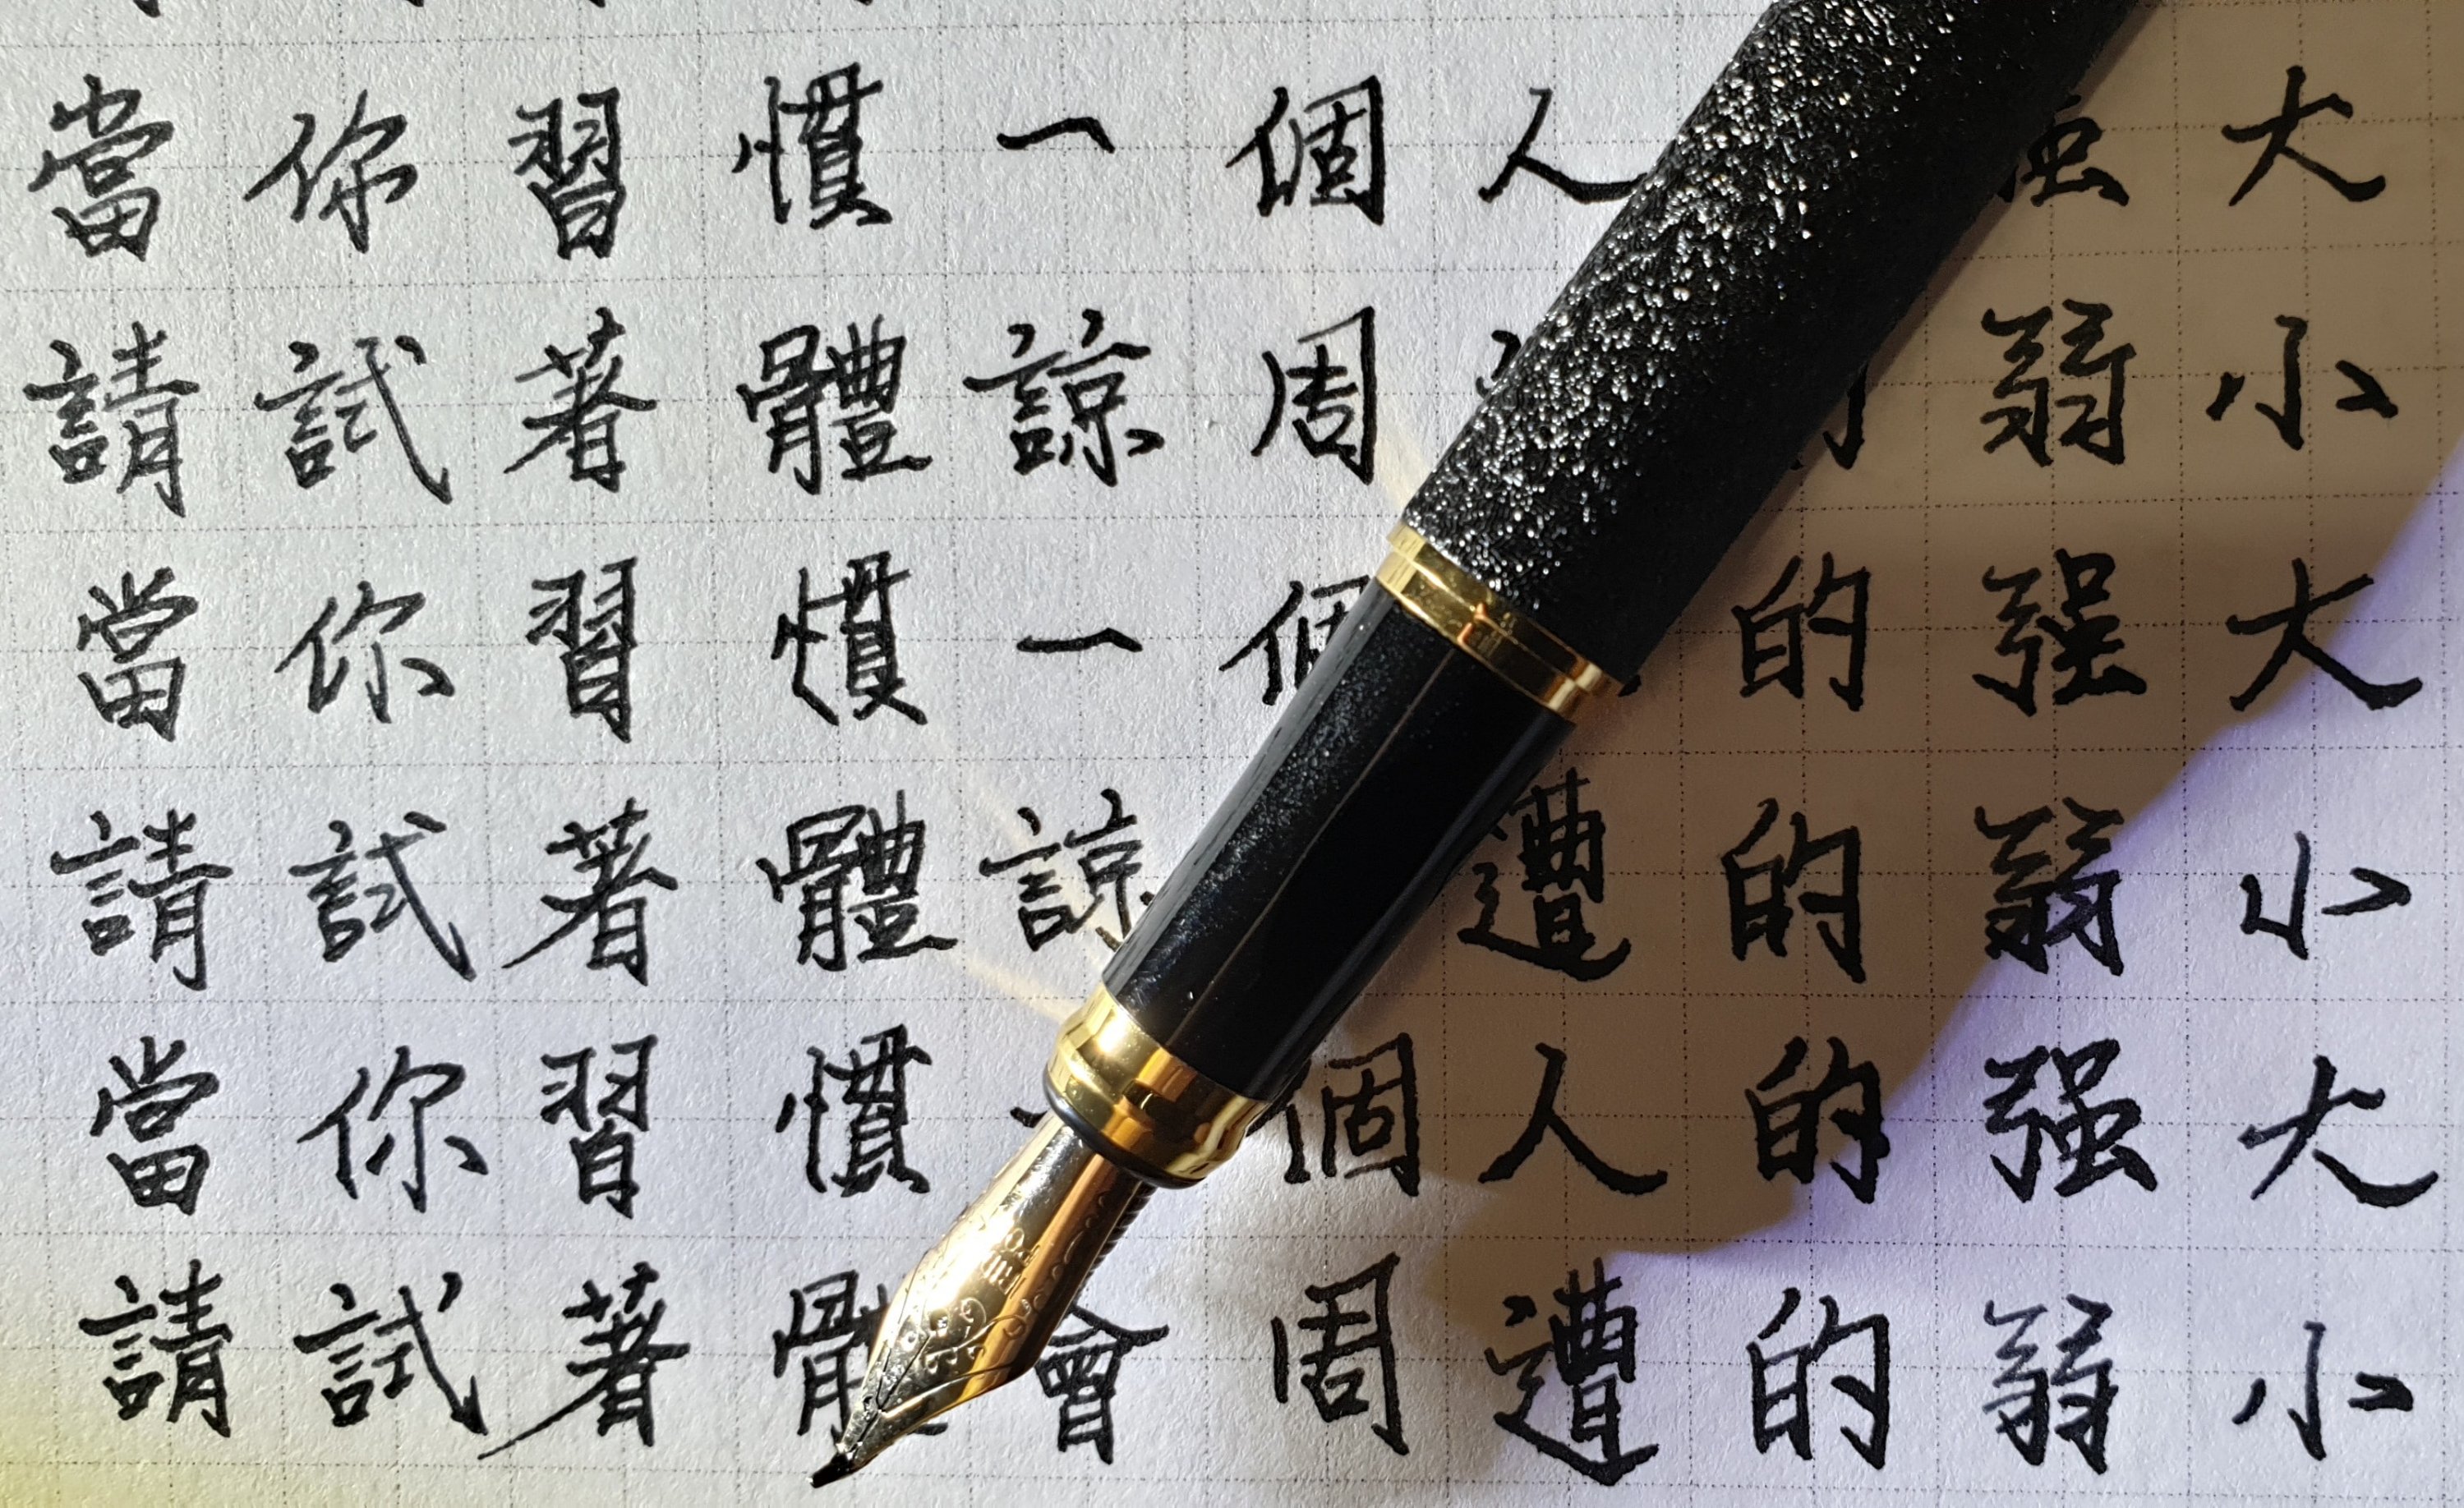 當你習慣一個人强大
請試著體諒周的弱小
當你習慣一個的强大
請試著體諒遭的弱小
當你習慣一個人的强大
請試著體會周遭的弱小